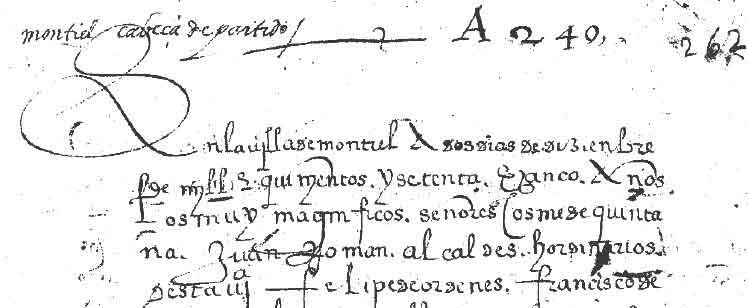 montiel cabeça de partido
A 240,
262
En la uilla de montiel A dos dias de dizienbre
de myll E quinientos. y setenta. E çinco. Años.
los muy magnificos. señores Cosme de quinta
na. Juan Roman. alcaldes. hordinarios.
desta uiª felipe de ordenes. francisco de